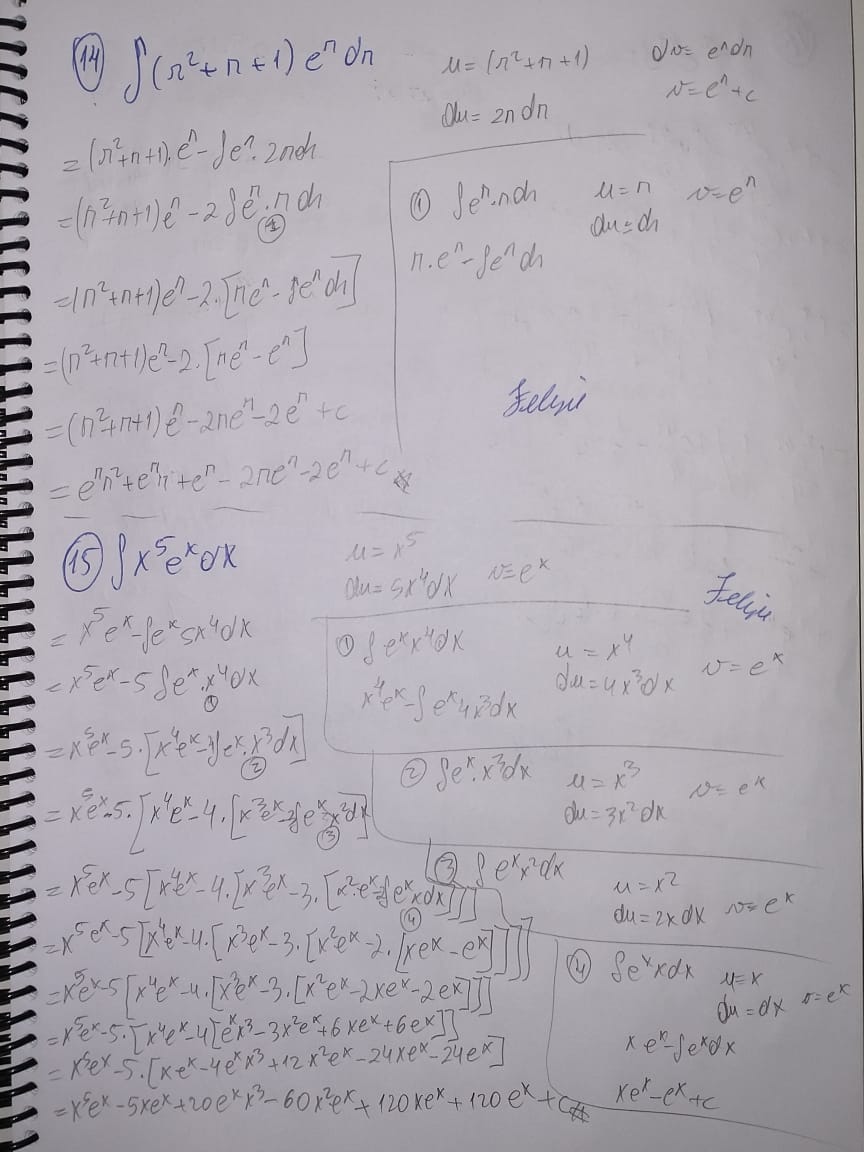 14 ∫(n²+n+1) eⁿ dn
u = (n²+n+1) dv = eⁿdn
du = 2n dn v = eⁿ+c
= (n²+n+1).eⁿ - ∫eⁿ. 2ndn
= (n²+n+1)eⁿ - 2 ∫eⁿ.n dn
①
= (n²+n+1)eⁿ - 2.[neⁿ - ∫eⁿ dn]
= (n²+n+1)eⁿ - 2.[neⁿ - eⁿ]
= (n²+n+1)eⁿ - 2neⁿ - 2eⁿ + c
= eⁿn² + eⁿn + eⁿ - 2neⁿ - 2eⁿ + c
① ∫eⁿ.ndn u = n v = eⁿ
du = dn
n.eⁿ - ∫eⁿdn
Felipe
15 ∫x⁵eˣdx
u = x⁵
du = 5x⁴dx v = eˣ
Felipe
= x⁵eˣ - ∫eˣ5x⁴dx
= x⁵eˣ - 5 ∫eˣ.x⁴dx
①
= x⁵eˣ - 5.[x⁴eˣ - 4∫eˣ.x³dx]
②
= x⁵eˣ - 5.[x⁴eˣ - 4.[x³eˣ - 3∫eˣ.x²dx]
③
= x⁵eˣ - 5[x⁴eˣ - 4.[x³eˣ - 3.[x²eˣ - 2∫eˣxdx]]]
④
= x⁵eˣ - 5[x⁴eˣ - 4.[x³eˣ - 3.[x²eˣ - 2.[xeˣ - eˣ]]]]
= x⁵eˣ - 5[x⁴eˣ - 4.[x³eˣ - 3.[x²eˣ - 2xeˣ - 2eˣ]]]
= x⁵eˣ - 5.[x⁴eˣ - 4[eˣx³ - 3x²eˣ + 6xeˣ + 6eˣ]]
= x⁵eˣ - 5.[xeˣ - 4eˣx³ + 12x²eˣ - 24xeˣ - 24eˣ]
= x⁵eˣ - 5xeˣ + 20eˣx³ - 60x²eˣ + 120xeˣ + 120eˣ + c
① ∫eˣx⁴dx u = x⁴
du = 4x³dx v = eˣ
x⁴eˣ - ∫eˣ4x³dx
② ∫eˣ.x³dx u = x³ v = eˣ
du = 3x²dx
③ ∫eˣx²dx u = x²
du = 2xdx v = eˣ
④ ∫eˣxdx u = x
du = dx v = eˣ
xeˣ - ∫eˣdx
xeˣ - eˣ + c